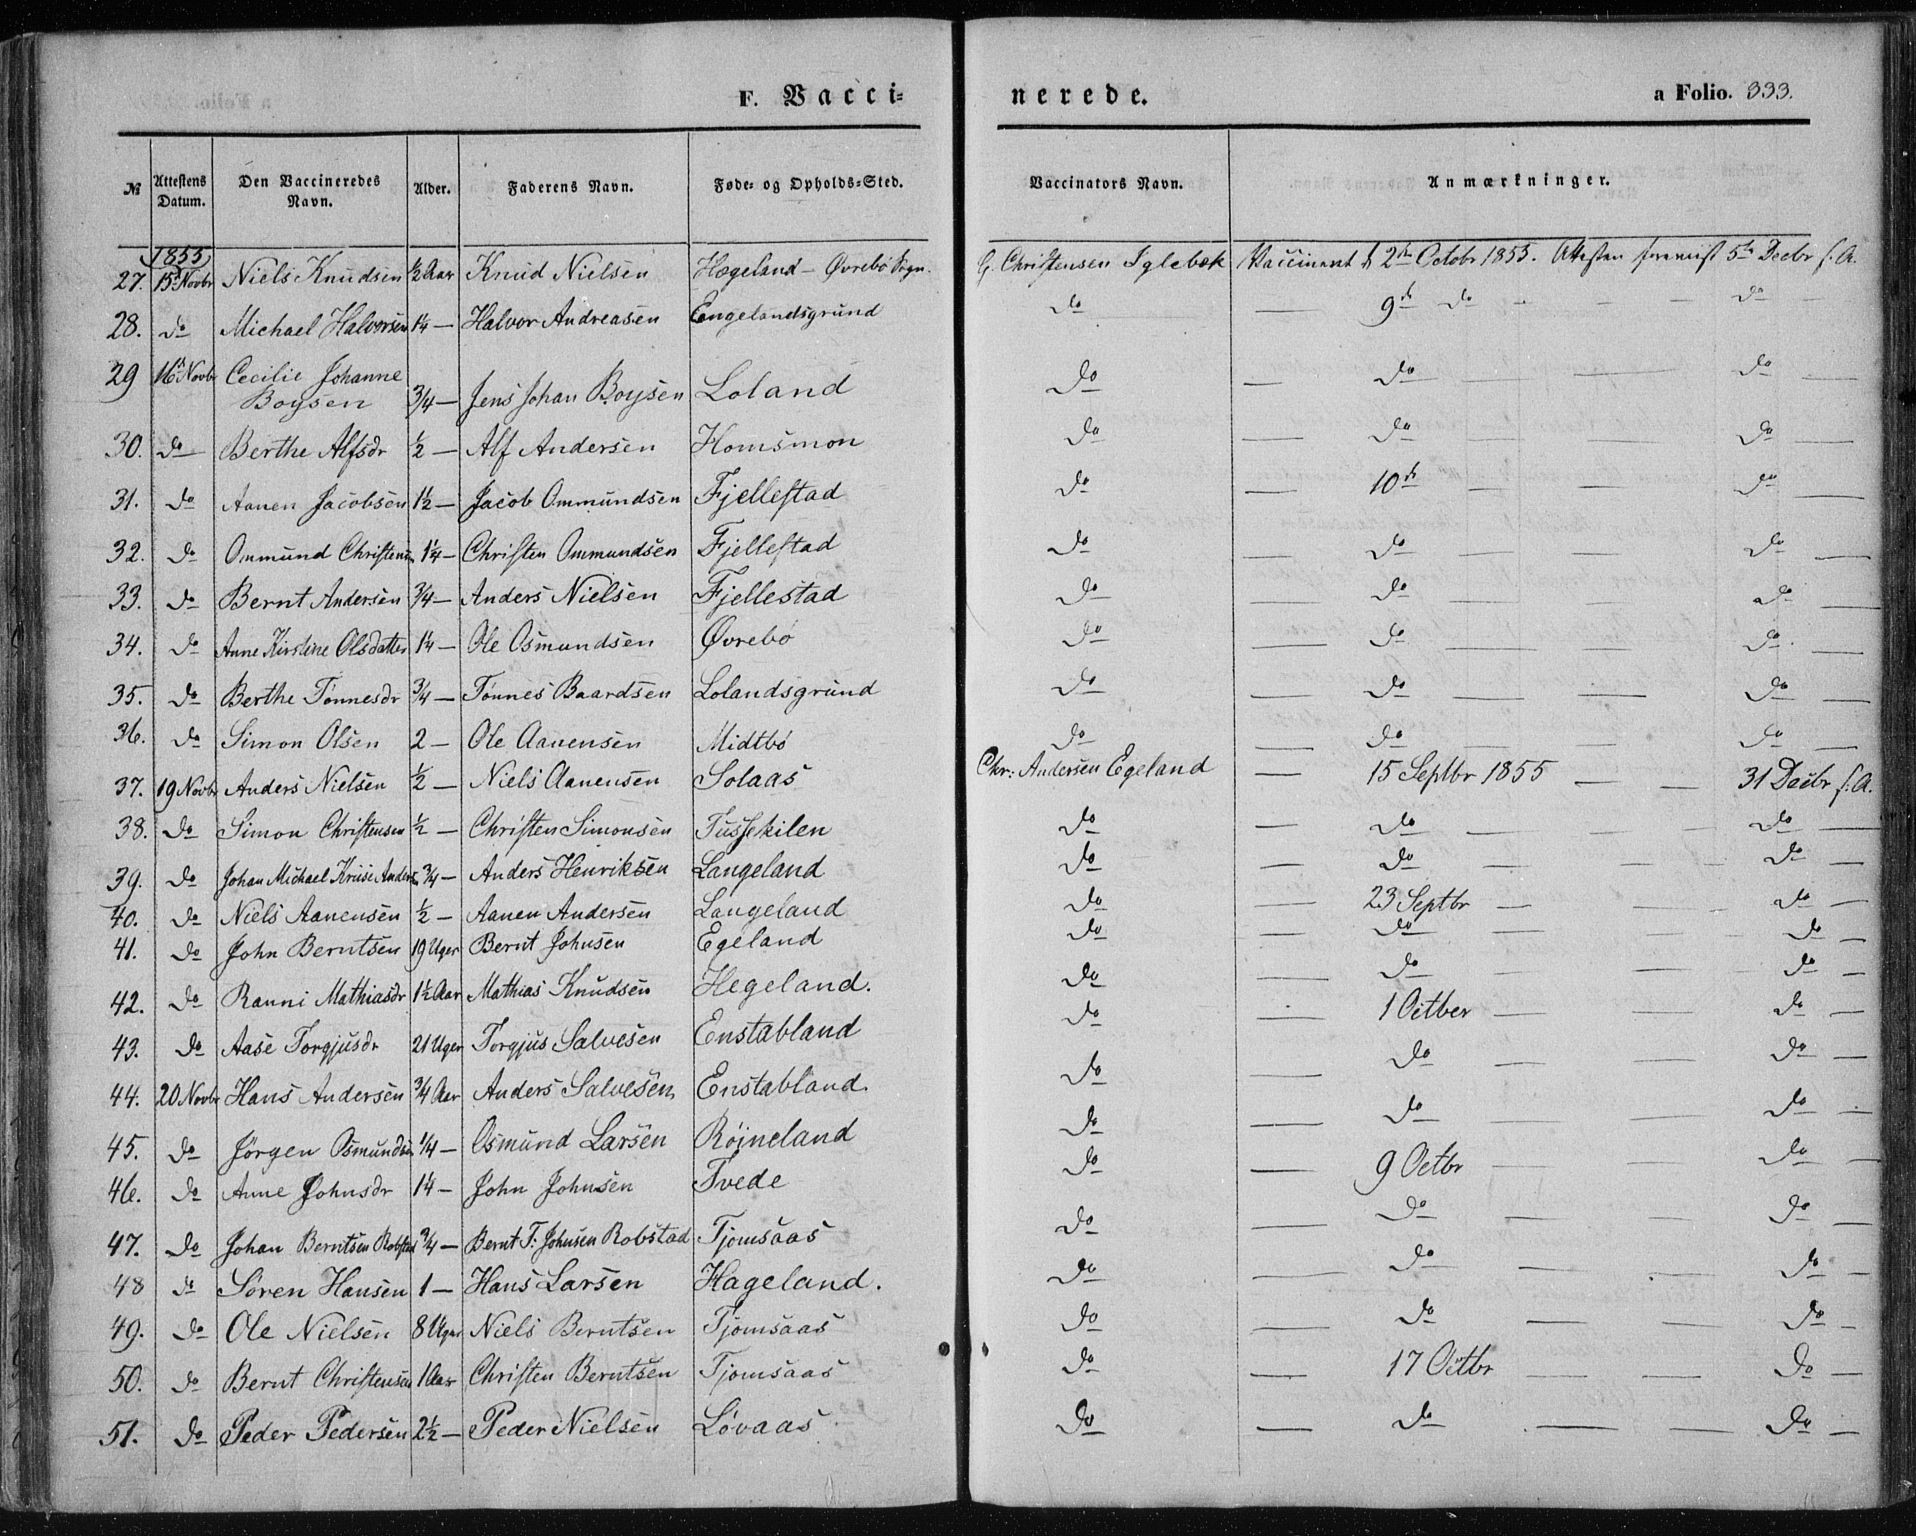 F. Vacci- nerede. a Folio. 333.
№ Attestens Datum. Den Vaccineredes Navn. Alder. Faderens Navn. Føde- og Opholds-Sted. Vaccinators Navn. Anmærkninger.
1855
27. 15d Novbr Niels Knudsen ½ Aar Knud Nielsen Hægeland - Øvrebø Sogn. G. Christensen Iglebæk Vaccineret d 2den Octobr 1855. Attesten foreviist 5te Decbr s. A.
28. do Michael Halvorsen 1¼ — Halvor Andreasen Engelandsgrund do — 9de do — — — do —
29 16d Novbr Cecilie Johanne Boysen ¾ — Jens Johan Boysen Loland do — do — — — do —
30. do Berthe Alfsdr ½ — Alf Andersen Homsmon do — do — — — do —
31. do Aanen Jacobsen 1½ — Jacob Ommundsen Fjellestad do — 10de — — — do —
32. do Ommund Christens. 1¼ — Christen Ommundsen Fjellestad do — do — — — do —
33. do Bernt Andersen ¾ — Anders Nielsen Fjellestad do — do — — — do —
34. do Anne Kirstine Olsdatter 1¼ — Ole Osmundsen Øvrebø do — do — — — do —
35. do Berthe Tønnesdr ¾ — Tønnes Baardsen Lolandsgrund do — do — — — do —
36. do Simon Olsen 2 — Ole Aanensen Midtbø do — do — — — do —
37. 19 Novbr Anders Nielsen ½ — Niels Aanensen Solaas Chr: Andersen Egeland — 15 Septbr 1855 — — 31 Decbr s. A.
38. do Simon Christensen ½ — Christen Simonsen Tussekilen do — do — — — do —
39. do Johan Michael Kruse Anders. ¾ — Anders Henriksen Langeland do — do — — — do —
40. do Niels Aanensen ½ — Aanen Andersen Langeland do — 23 Septbr — — — do —
41. do John Berntsen 19 Uger Bernt Johnsen Egeland do — do — — — do —
42. do Ranni Mathiasdr 1½ Aar Mathias Knudsen Hegeland. do — do — — — do —
43. do Aase Torgjusdr 21 Uger Torgjus Salvesen Enstabland do — 1 Octber — — — do —
44. 20 Novbr Hans Andersen ¾ Aar Anders Salvesen Enstabland. do — do — — — do —
45. do Jørgen Osmundsen ¼ — Osmund Larsen Røineland do — do — — — do —
46. do Anne Johnsdr 1¼ — John Johnsen Tvede do — 9 Octbr — — — do —
47. do Johan Berntsen Robstad ¾ — Bernt T. Johnsen Robstad Tjomsaas do — do — — — do —
48 do Søren Hansen 1 — Hans Larsen Hageland. do — do — — — do —
49. do Ole Nielsen 8 Uger Niels Berntsen Tjomsaas do — do — — — do —
50. do Bernt Christensen 1 Aar Christen Berntsen Tjomsaas do — 17 Octbr — — — do —
51. do Peder Pedersen 2½ — Peder Nielsen Løvaas do — do — — — do —